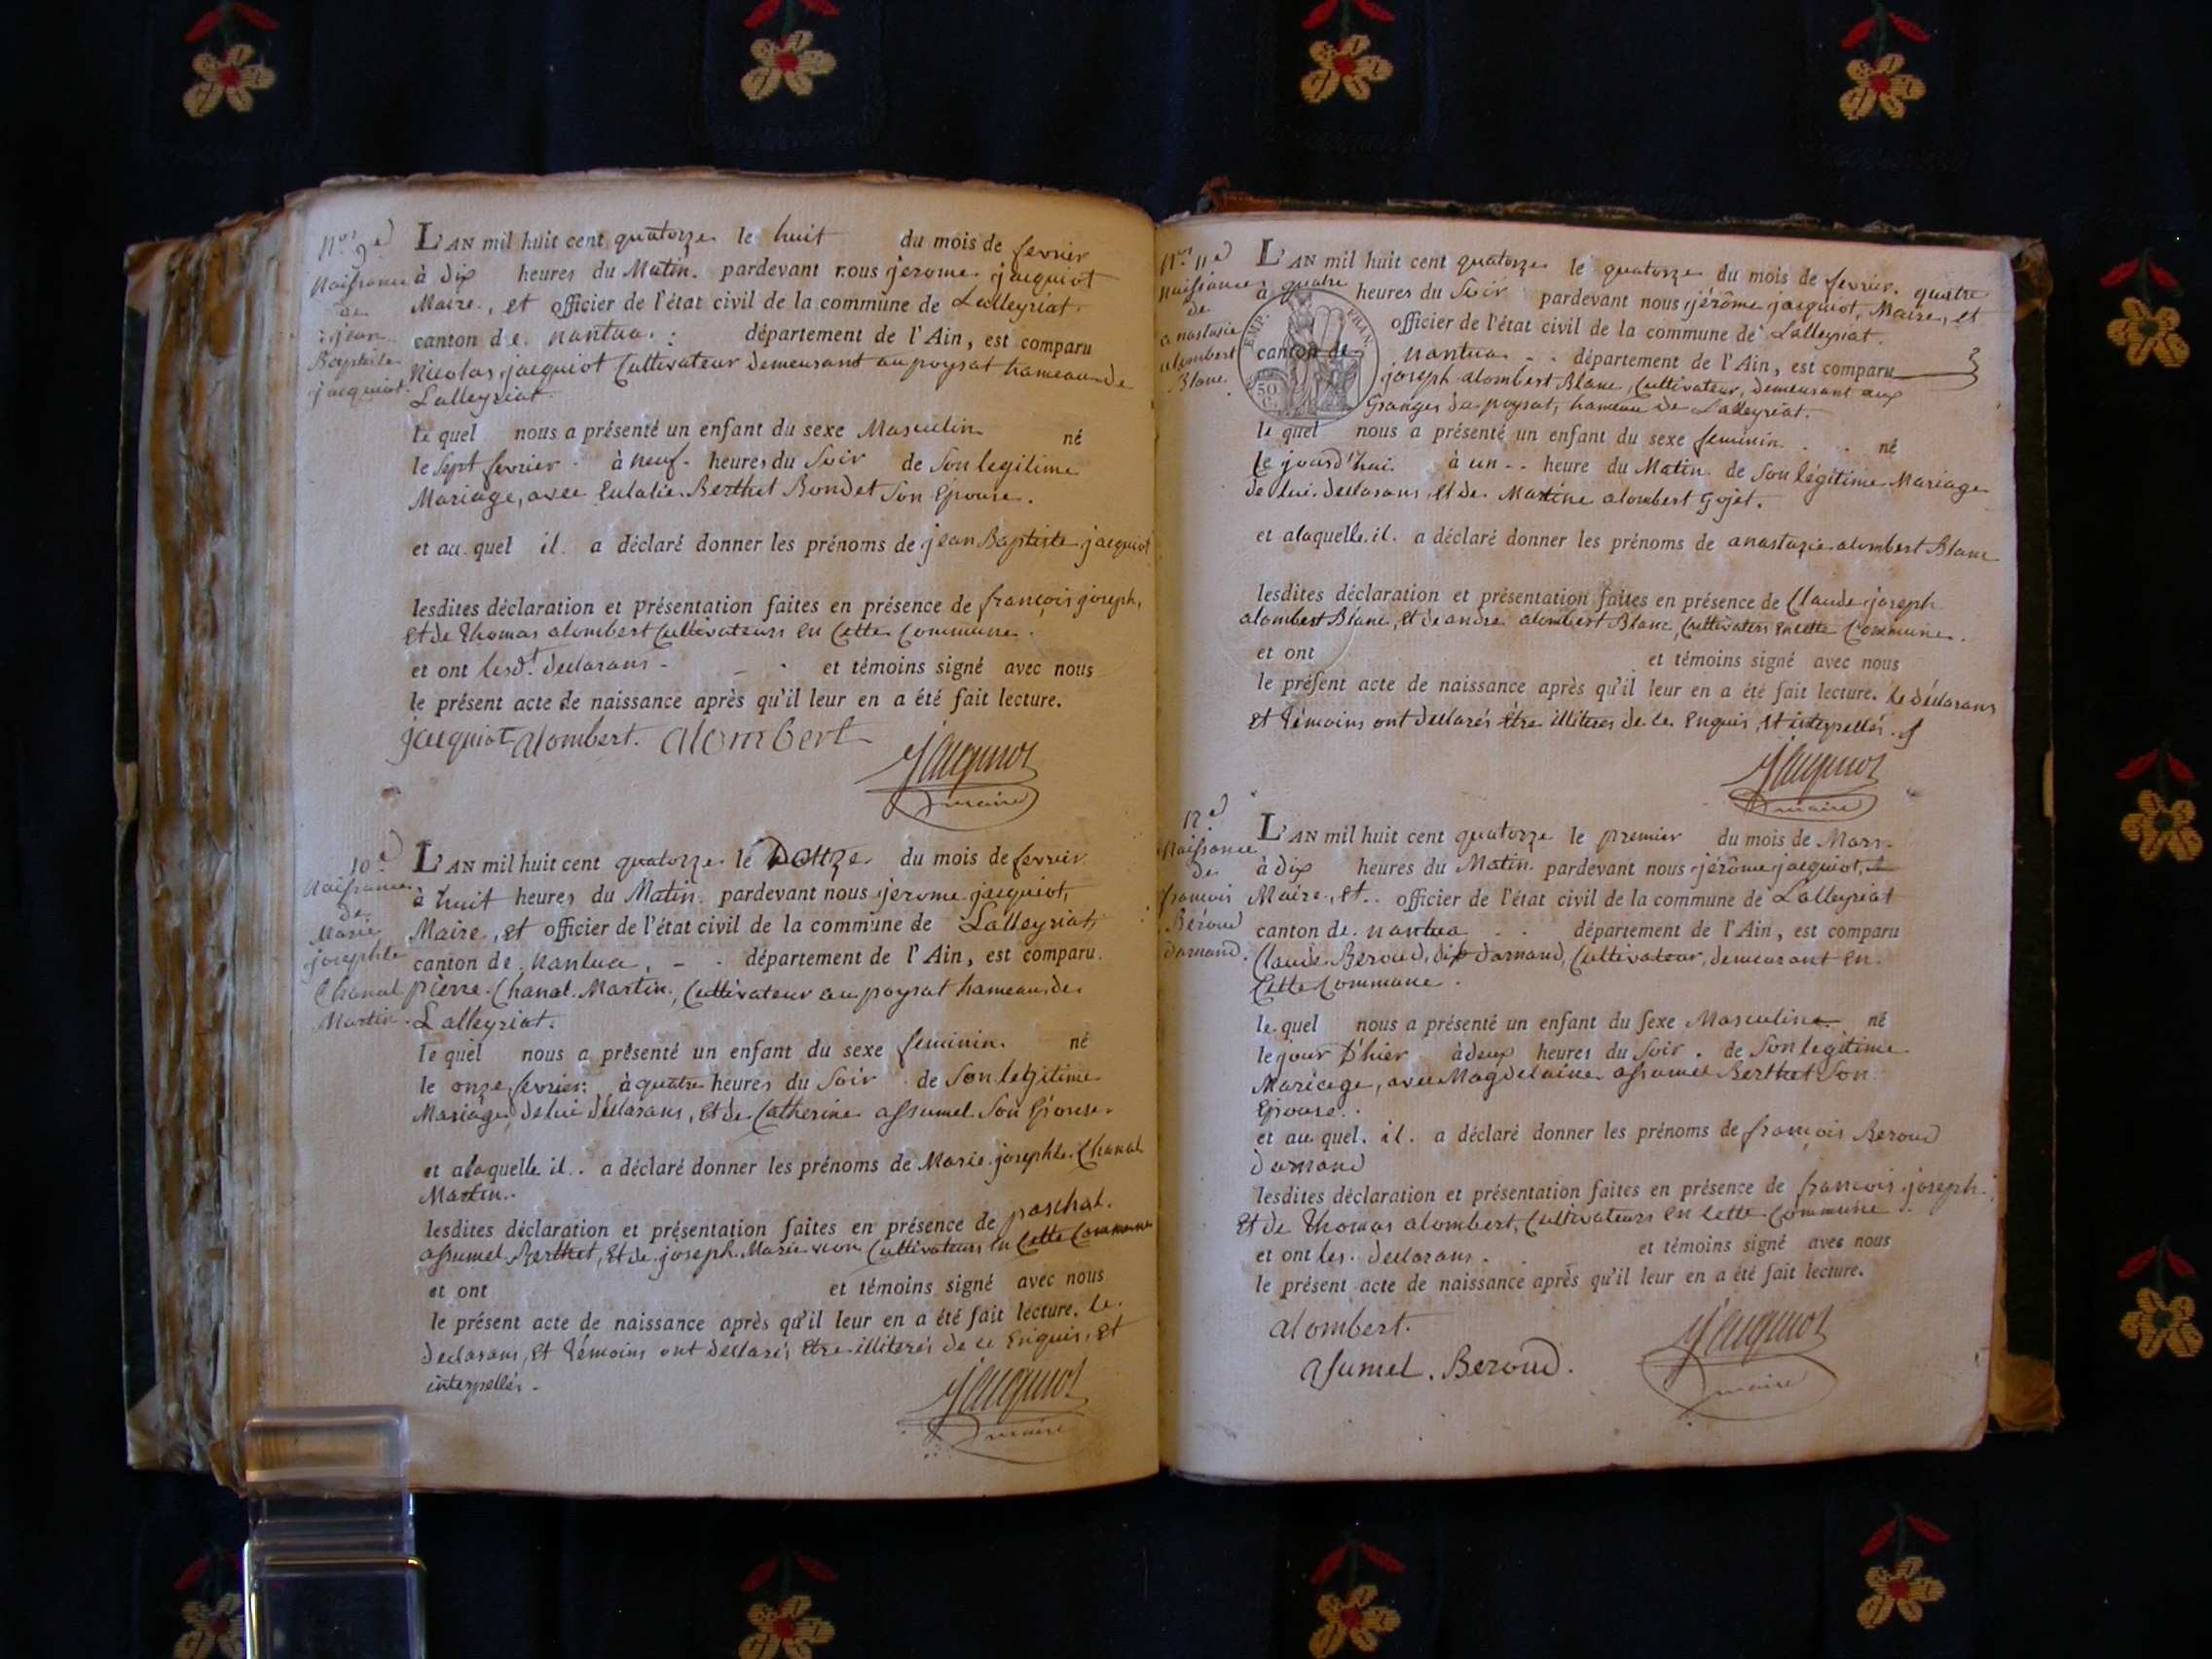 Nos 9e
Naissance
de
jean
Baptiste
jacquiot.
L'AN mil huit cent quatorze le huit du mois de fevrier
à dix heures du Matin. pardevant nous jerome jacquiot
Maire, et officier de l'état civil de la commune de Lalleyriat.
canton de nantua. : département de l'Ain, est comparu
Nicolas jacquiot Cultivateur demeurant au poysat hameau de
Lalleyriat.
le quel nous a présenté un enfant du sexe Masculin né
le sept fevrier à neuf heures du Soir de Son legitime
Mariage, avec Eulalie Berthet Bondet Son Epouse.
et au quel il a déclaré donner les prénoms de jean Baptiste jacquiot
lesdites déclaration et présentation faites en présence de françois joseph,
et de Thomas alombert Cultivateurs en Cette Commune.
et ont lesdt. declarans - et témoins signé avec nous
le présent acte de naissance après qu'il leur en a été fait lecture.
jacquiot alombert. alombert
Jacquiot
maire
10e
Naissance
de
Marie
josephte
Chanal
Martin.
L'AN mil huit cent quatorze le Douze du mois de fevrier
à huit heures du Matin. pardevant nous jerome jacquiot,
Maire, et officier de l'état civil de la commune de Lalleyriat,
canton de Nantua, - - département de l'Ain, est comparu.
pierre Chanal Martin, Cultivateur au poysat hameau de
Lalleyriat.
le quel nous a présenté un enfant du sexe feminin. né
le onze fevrier: à quatre heures du Soir de Son legitime
Mariage de lui déclarans, et de Catherine assumel Son Epouse.
et a laquelle il . a déclaré donner les prénoms de Marie josephte Chanal
Martin.
lesdites déclaration et présentation faites en présence de paschal.
assumel Berthet, et de joseph Marie Cultivateurs en Cette Commune
et ont et témoins signé avec nous
le présent acte de naissance après qu'il leur en a été fait lecture. le
declarans, et témoins ont declarés être illiterés de ce Enquis, et
interpellés -
Jacquiot
maire
Nos 11e
Naissance
de
anastasie
alombert
Blanc.
EMP. FRAN.
50 C.
L'AN mil huit cent quatorze le quatorze du mois de fevrier. quatre
à quatre heures du Soir pardevant nous jérôme jacquiot, Maire, et
officier de l'état civil de la commune de Lalleyriat.
canton de Nantua - - département de l'Ain, est comparu
joseph alombert Blanc, Cultivateur, demeurant aux
Granges du poysat, hameau de Lalleyriat.
le quel nous a présenté un enfant du sexe feminin. . . né
le jourd'hui. à un - - heure du Matin de Son légitime Mariage
de lui declarans, et de Martine alombert Gojet.
et a laquelle il. a déclaré donner les prénoms de anastazie alombert Blanc
lesdites déclaration et présentation faites en présence de Claude joseph
alombert Blanc, et de andré alombert Blanc, Cultivateurs en cette Commune.
et ont et témoins signé avec nous
le présent acte de naissance après qu'il leur en a été fait lecture. le déclarans
et témoins ont declarés être illiterés de ce Enquis, et interpellés.
Jacquiot
maire
12e
Naissance
de
francois
Béroud
darnand.
L'AN mil huit cent quatorze le premier du mois de Mars.
à dix heures du Matin. pardevant nous jérôme jacquiot,
Maire, et . . officier de l'état civil de la commune de Lalleyriat
canton de nantua - - département de l'Ain, est comparu
Claude Beroud, dit darnand, Cultivateur, demeurant en
Cette Commune.
le quel nous a présenté un enfant du sexe Masculin né
le jour D'hier à deux heures du Soir . de Son legitime
Mariage, avec Magdelaine assumel Berthet Son
Epouse.
et au quel. il. a déclaré donner les prénoms de francois Beroud
darnand
lesdites déclaration et présentation faites en présence de francois joseph
et de Thomas alombert, Cultivateurs en cette Commune
et ont les declarans. et témoins signé avec nous
le présent acte de naissance après qu'il leur en a été fait lecture.
alombert.
asumel. Beroud.
Jacquiot
maire